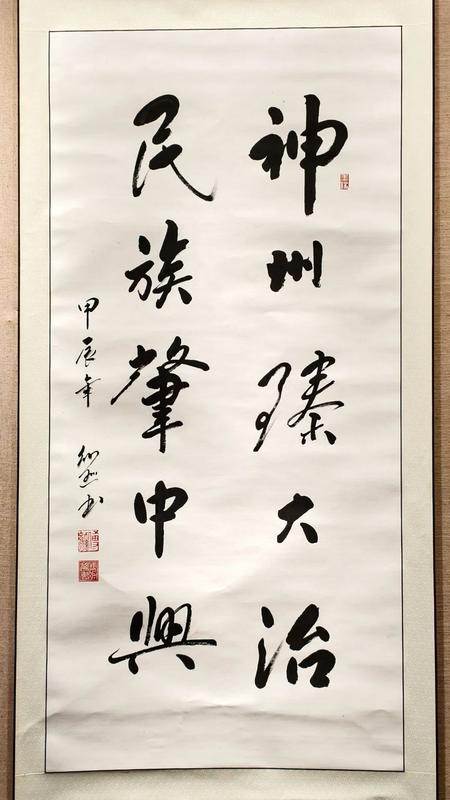 神州臻大治
民族肇中興
甲辰年
书